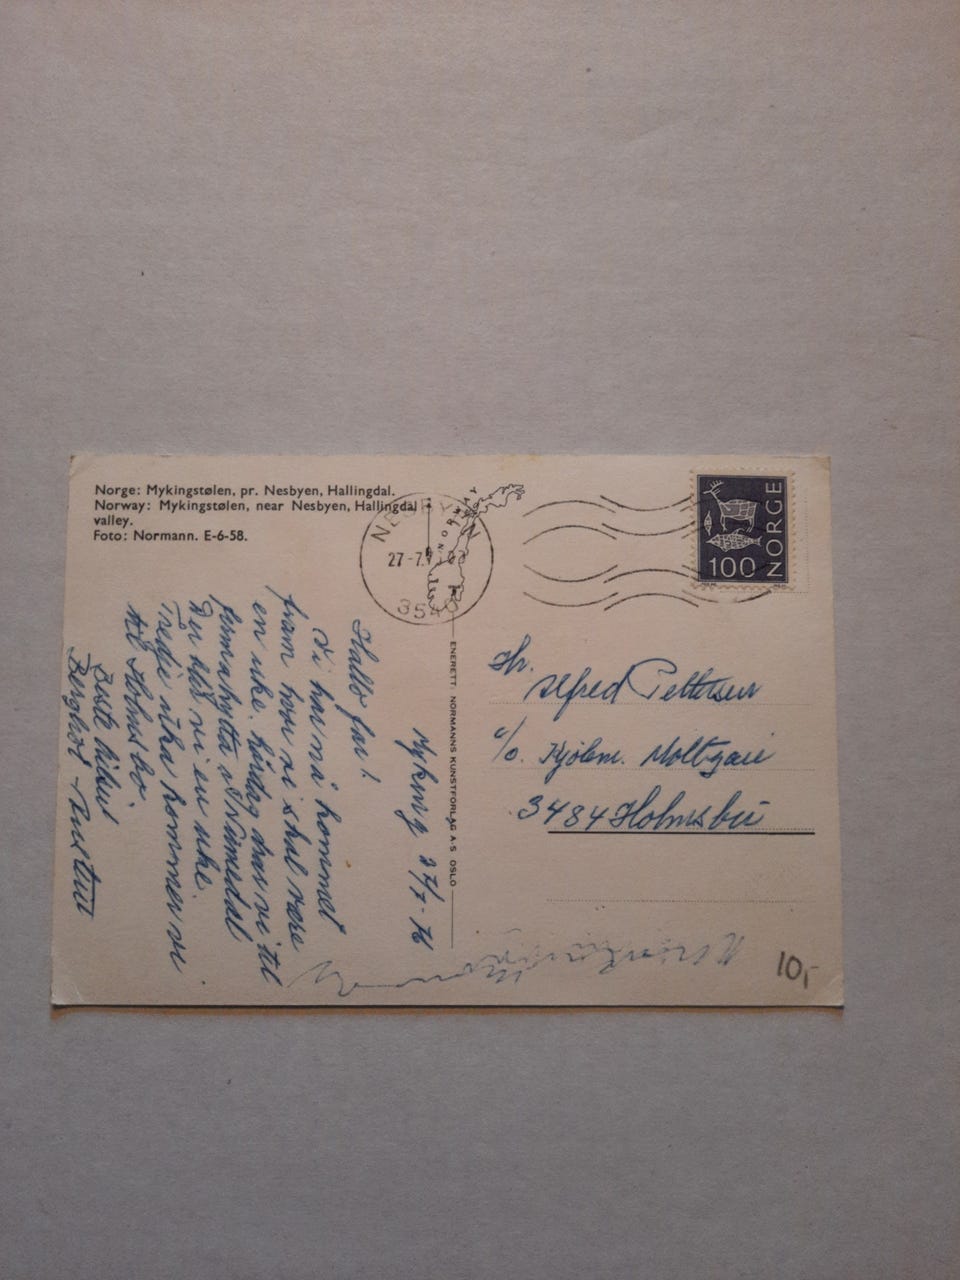 Norge: Mykingstølen, pr. Nesbyen, Hallingdal.
Norway: Mykingstølen, near Nesbyen, Hallingdal
valley.
Foto: Normann. E-6-58.
NESBYEN
27-7
3540
NORWAY
NORGE
100
ENERETT: NORMANNS KUNSTFORLAG A·S OSLO
Myking 27/7-76
Hallo far!
Vi har nå kommet
fram hvor vi skal være
en uke. Lørdag drar vi til
firmahytta i Numedal
Der blir vi en uke.
Tredje uka kommer vi
til Holmsbo.
Hr.
Alfred Pettersen
c/o. Kjølem.
3484 Holmsbu
10,-